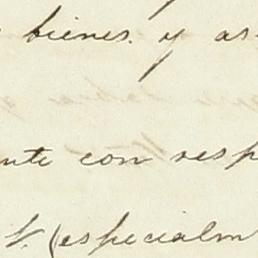 bienes. y as
nte con resp
V. (especialm